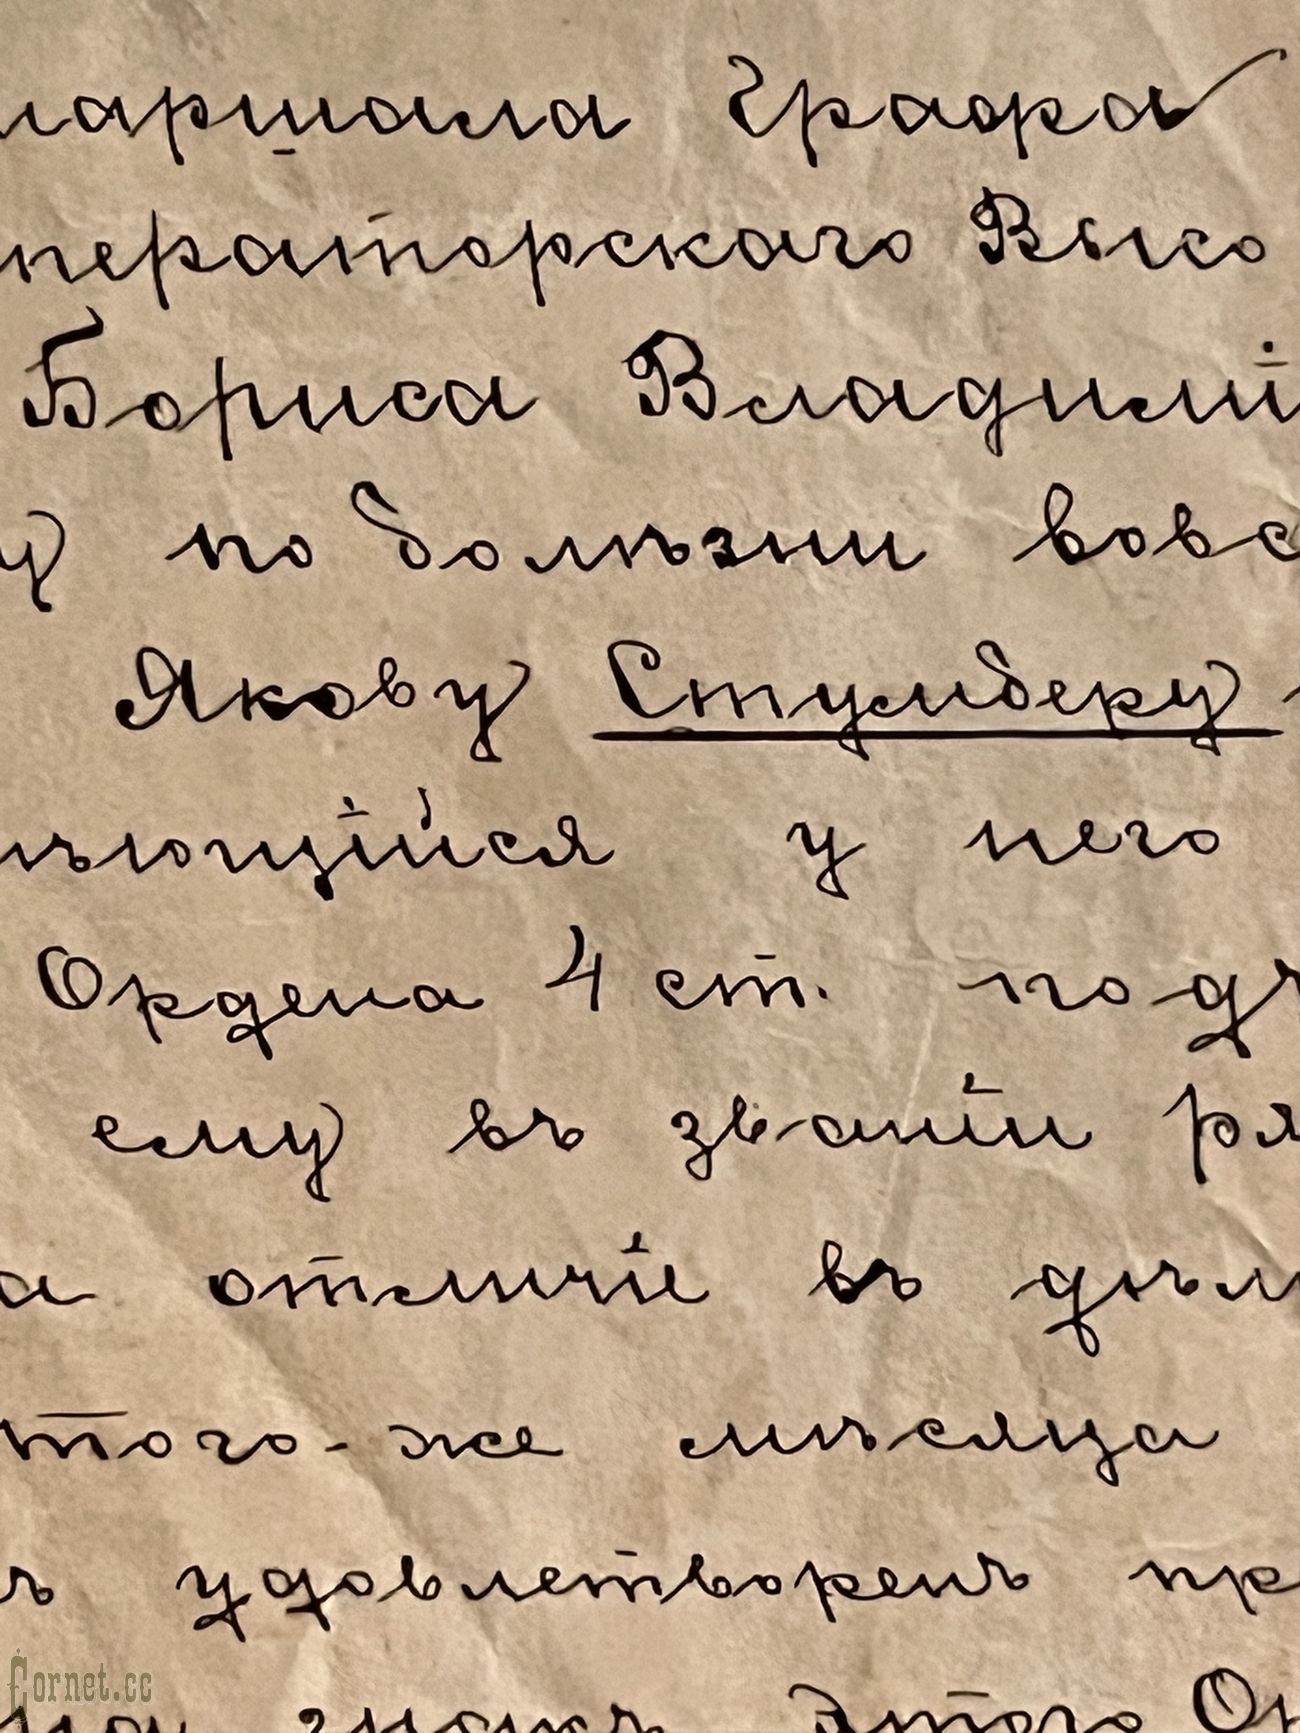 маршала Графа
ператорского Высо
Бориса Владимі
у по болѣзни вовс
Якову Стумберу
ѣющійся у него
Ордена 4 ст. подъ
ему въ званіи ря
а отличіе въ дѣл
того-же мѣсяца
ъ удовлетворенъ пр
на знакъ этого Ор
Cornet.cc